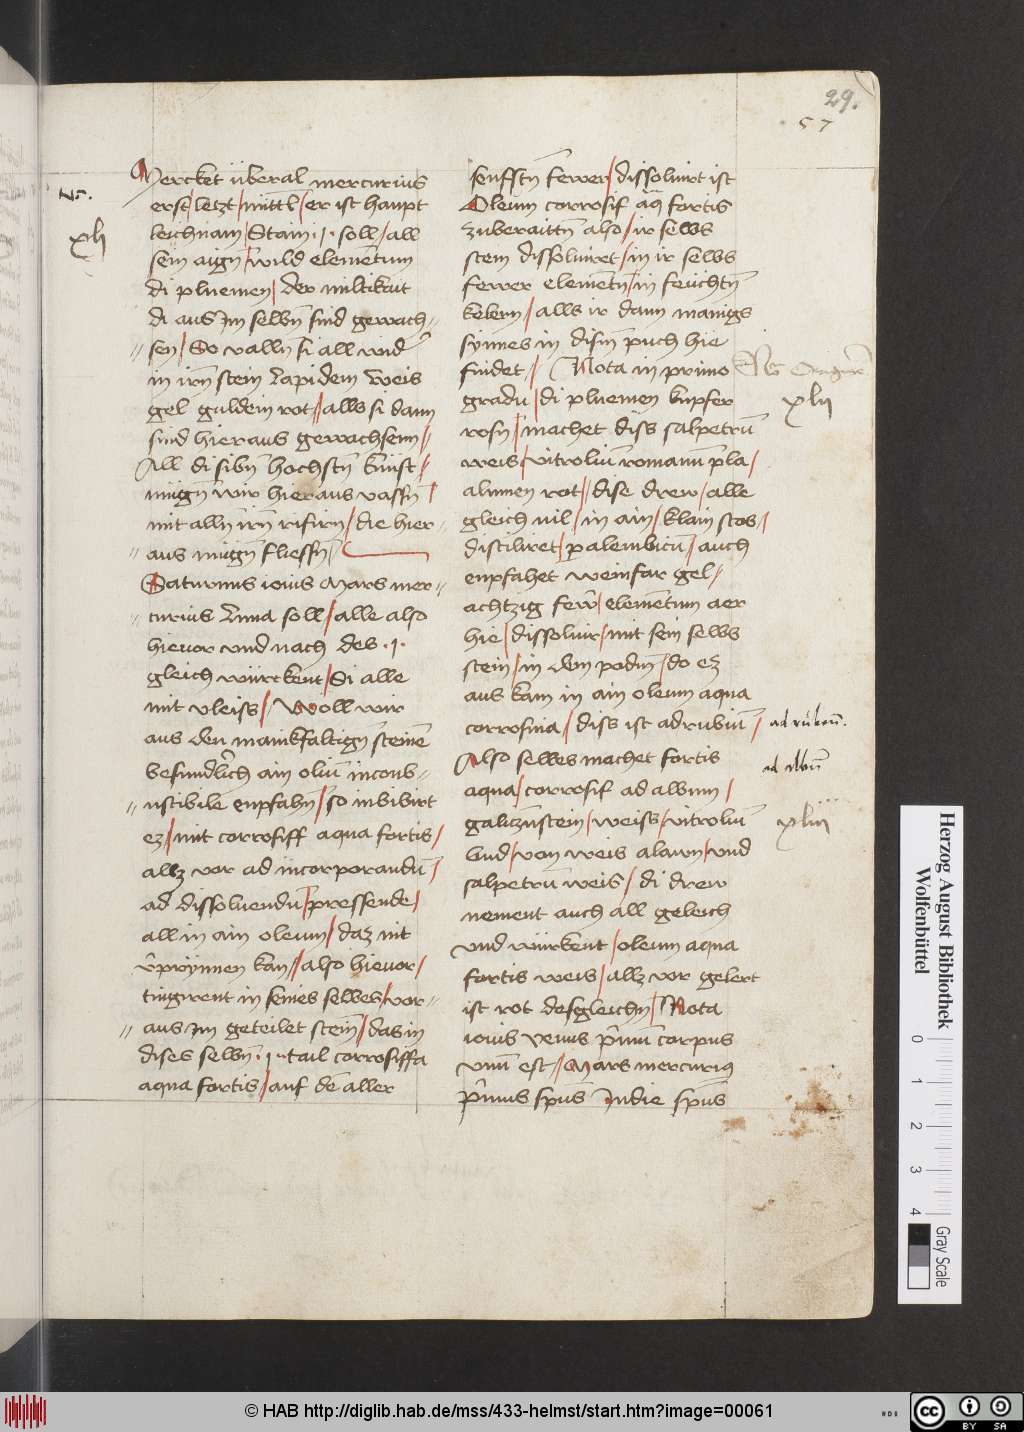 29.
57
Nō.
xli
Mercket überal mercurius
erst / letzt / mittl̄ / er ist haupt
leichnam / Stam · 1 · soll / all
sein aign̄ / wild elementum
di pluemen / der miltikait
di aus Im selbn̄ sind gewach=
sen / So valln̄ si all vnd
in irn̄ stein Lapidem Weis
gel guldein rot // alls si dann
sind hieraus gewachsenn //
All di sibn̄ hochstn̄ künst //
mügn̄ wir hieraus vassn̄ /
mit alln̄ irn̄ / die hier=
aus mügn̄ fliessn̄ /
Saturnus iouis Mars mer=
curius Luna soll / alle also
hieuor vnd nach des · 1 ·
gleich würckent / Si alle
mit vleiss / Woll wir
aus den manikfaltign̄ steinē
besunderlich ain oliū inconb=
ustibile enpfahn̄ / so inbibirt
ez / mit corrosiff aqua fortis /
allz vor ad incorporandū /
ad dissoluendū / pressende /
all in ain oleum / daz nit
v̄prynnen kan // also hieuor /
tingirent in seines selbes / vor=
aus Im geteilet stein̄ / das in
dises selbn̄ · 1 · tail corrosiffa
aqua fortis / auf dē aller
senfftn̄ fewer / dissoluirt ist
Oleum corrosif aq̄ fortis
zuberaittn̄ also / ir selbs
stein dissoluiret / in ir selbs
fewer elementn̄ / in feuchtn̄
kelern / alls ir dann manigs
synnes in disem̄ puch hie
findet / Nota in primo
gradu / di pluemen kupfer
rosn̄ / machet diss salpetrū
weis / vitrolium romanū pla /
alumen rot // dise drew / alle
gleich uil / in ain / klain stos /
distiliret / p alembicū / auch
enpfahet weinfar gel /
achtzig few̄ / elementum aer
hie / dissoluir / mit sein selbs
stein / in dem podm̄ / do ez
aus kam in ain oleum aqua
corrosiua / diss ist ad rubiū /
Also selbes machet fortis
aqua / corrosif ad album /
galicznstein / weiss / vitroliū
vnd / von weis alawn / vnd
salpetrū weis / di drew
nement auch all geleich
vnd würkent / oleum aqua
fortis weis / allz vor gelert
ist rot desgleichn̄ / Nota
iouis venus primū corpus
vnū est // Mars mercuriꝰ
primus spūs Indie spūs
xlii
ad rubeū.
ad albū
xliii
Herzog August Bibliothek
Wolfenbüttel
0 1 2 3 4
Gray Scale
© HAB http://diglib.hab.de/mss/433-helmst/start.htm?image=00061
cc BY SA